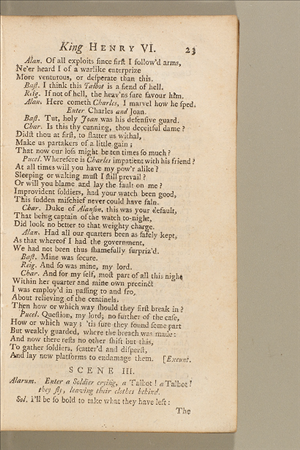 King HENRY VI. 23
Alan. Of all exploits ſince firſt I follow'd arms,
Ne'er heard I of a warlike enterprize
More venturous, or deſperate than this.
Baſt. I think this Talbot is a fiend of hell.
Reig. If not of hell, the heav'ns ſure favour him.
Alan. Here cometh Charles, I marvel how he ſped.
Enter Charles and Joan.
Baſt. Tut, holy Joan was his defenſive guard.
Char. Is this thy cunning, thou deceitful dame?
Didſt thou at firſt, to flatter us withal,
Make us partakers of a little gain;
That now our loſs might be ten times ſo much?
Pucel. Wherefore is Charles impatient with his friend?
At all times will you have my pow'r alike?
Sleeping or waking muſt I ſtill prevail?
Or will you blame and lay the fault on me?
Improvident ſoldiers, had your watch been good,
This ſudden miſchief never could have faln.
Char. Duke of Alanſon, this was your default,
That being captain of the watch to-night,
Did look no better to that weighty charge.
Alan. Had all our quarters been as ſafely kept,
As that whereof I had the government,
We had not been thus ſhamefully ſurpriz'd.
Baſt. Mine was ſecure.
Reig. And ſo was mine, my lord.
Char. And for my ſelf, moſt part of all this night
Within her quarter and mine own precinct
I was employ'd in paſſing to and fro,
About relieving of the centinels.
Then how or which way ſhould they firſt break in?
Pucel. Queſtion, my lord, no further of the caſe,
How or which way; 'tis ſure they found ſome part
But weakly guarded, where the breach was made:
And now there reſts no other ſhift but this,
To gather ſoldiers, ſcatter'd and diſperſt,
And lay new platforms to endamage them. [Exeunt.
SCENE III.
Alarum. Enter a Soldier crying, a Talbot! a Talbot!
they fly, leaving their clothes behind.
Sol. I'll be ſo bold to take what they have left:
The